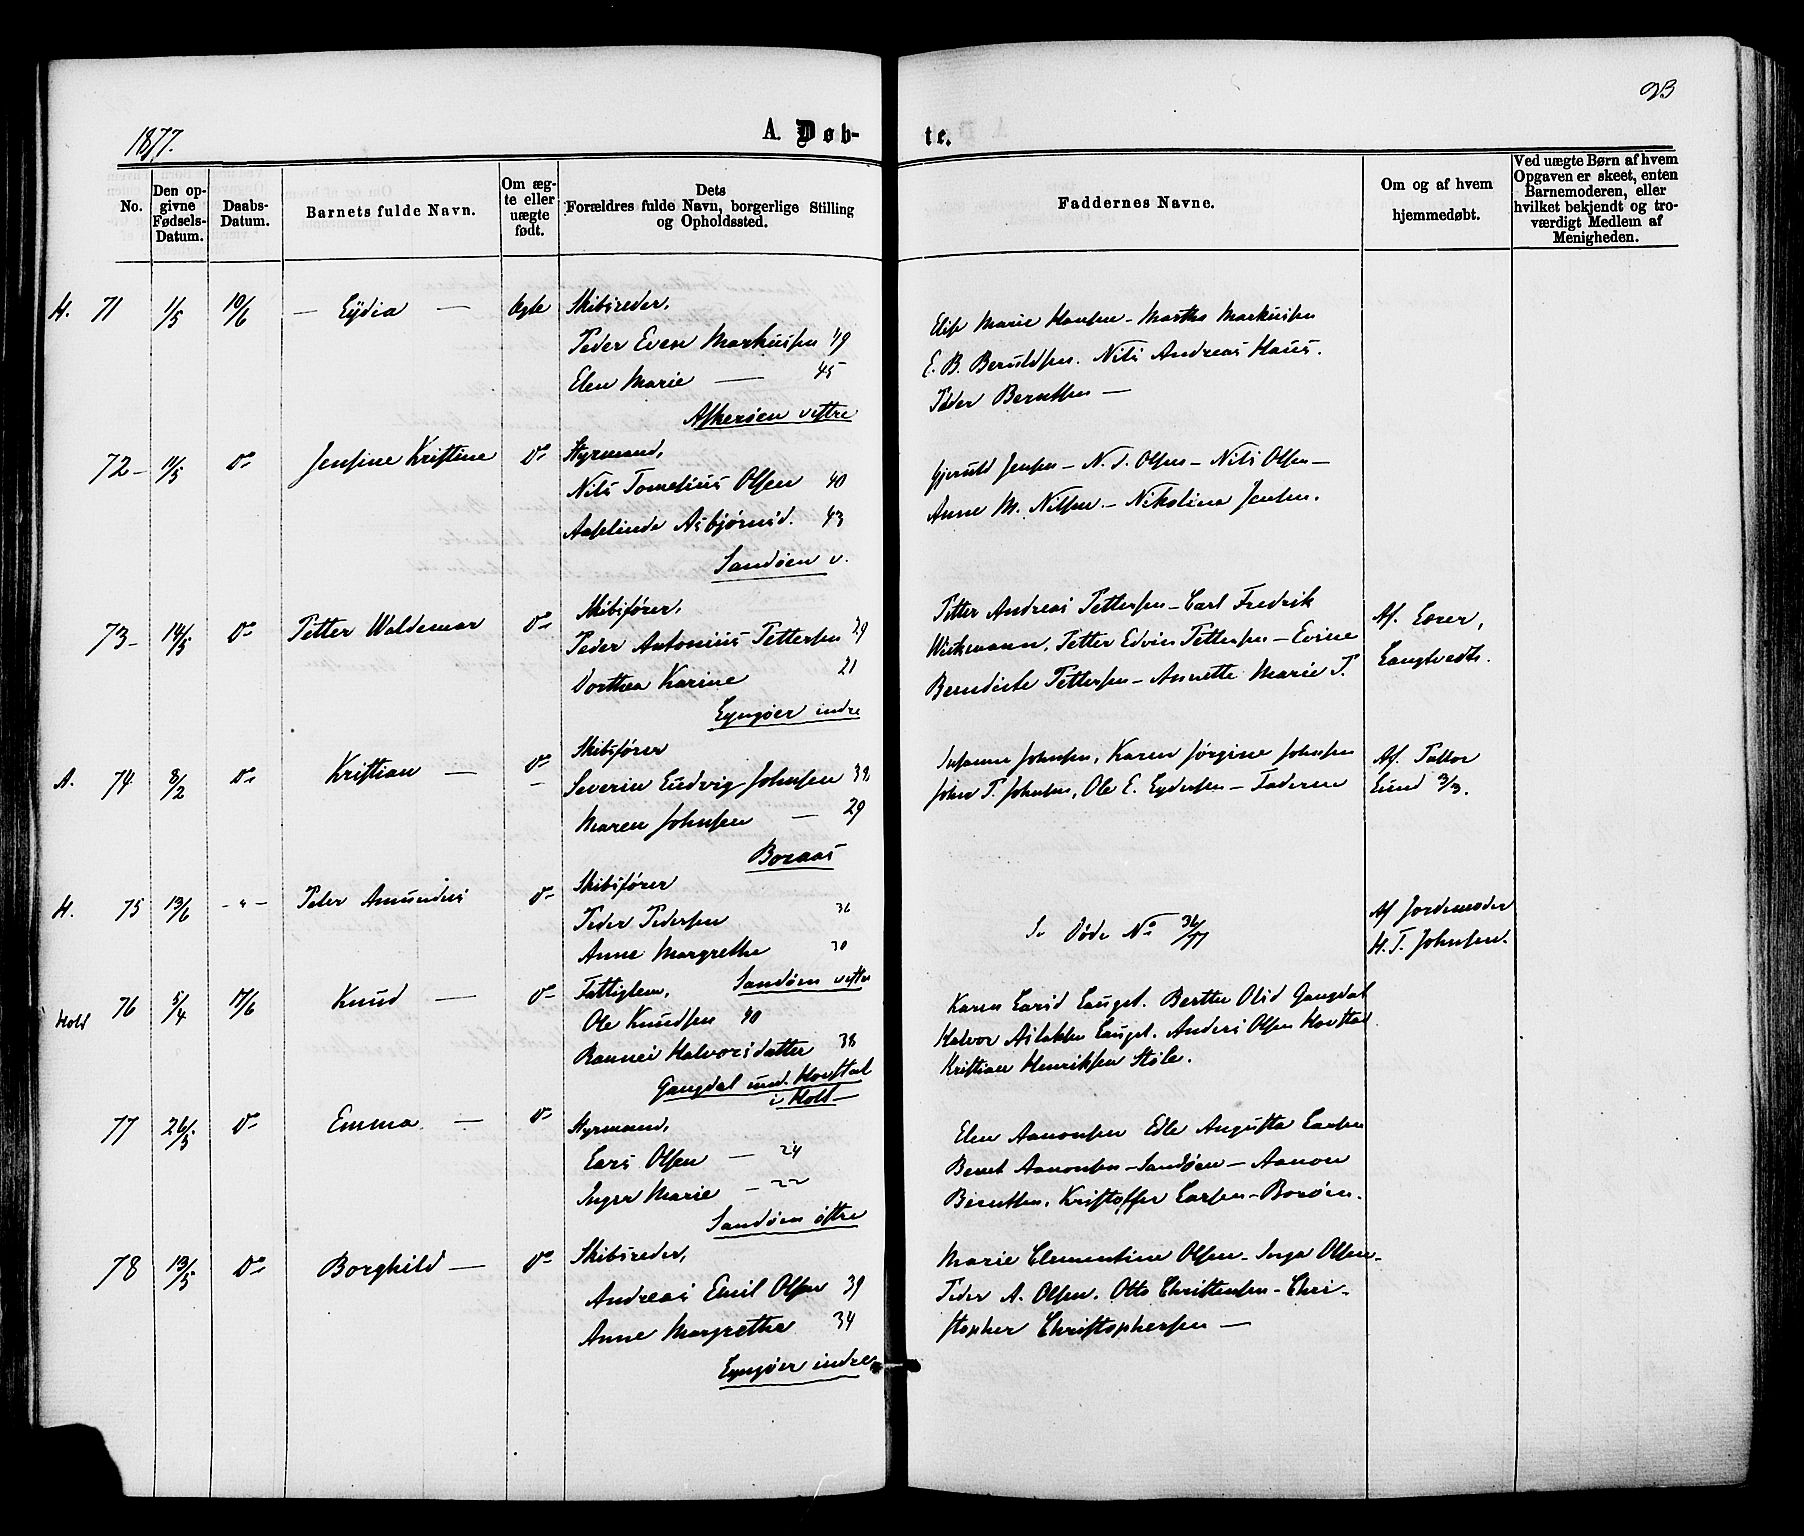 23
1877.
A. Døb-
te.
No.
Den op-
givne
Fødsels-
Datum.
Daabs-
Datum.
Barnets fulde Navn.
Om æg-
te eller
uægte
født.
Dets
Forældres fulde Navn, borgerlige Stilling
og Opholdssted.
Faddernes Navne.
Om og af hvem
hjemmedøbt.
Ved uægte Børn af hvem
Opgaven er skeet, enten
Barnemoderen, eller
hvilket bekjendt og tro-
værdigt Medlem af
Menigheden.
H. 71 1/5 10/6 — Lydia — Ægte Skibsreder,
Peder Even Markussen 49
Elen Marie — 45
Askerøen vestre
Elise Marie Hansen - Martha Markussen
E. B. Beruldsen. Nils Andreas Hans.
Peder Berntsen —
72 - 11/5 Do Jensine Kristine Do Styrmand,
Nils Tomesius Olsen 40
Aaselinde Asbjørnsd. 43
Sandøen v.
Gjeruld Jensen - N. T. Olsen - Nils Olsen -
Anne M. Nilsen - Nikoline Jensen.
73 - 14/5 Do Petter Waldemar Do Skibsfører,
Peder Antonius Pettersen 29
Dorthea Karine 21
Lyngøer indre
Petter Andreas Pettersen - Carl Fredrik
Wickmann. Petter Edvin Pettersen - Evine
Benedicte Pettersen - Annette Marie P.
Af Lærer,
Langtvedt.
A. 74 8/2 Do Kristian — Do Skibsfører
Severin Ludvig Johnsen 39
Maren Johnsen — 29
Boraas
Susanne Johnsen, Karen Jørgine Johnsen
John T. Johnsen, Ole E. Eydersen - Faderen
Af Pastor
Lund 3/3.
H. 75 13/6 - " - Peter Amundus Do Skibsfører
Peder Pedersen 36
Anne Margrethe 30
Sandøen vestre
Se Døde No 36/77
Af Jordemoder
H. T. Johnsen.
Holt 76 5/4 17/6 Knud — Do Fattiglem,
Ole Knudsen 40
Rannei Halvorsdatter 38
Gangdal und. Hovstad
i Holt —
Karen Larsd Lauget. Berthe Olsd Gangdal
Halvor Aslaksen Lauget. Anders Olsen Hovstad.
Kristian Henriksen Støle.
77 26/5 Do Emma. — Do Styrmand,
Lars Olsen — 24
Inger Marie — 22
Sandøen østre
Elen Aanonsen Edle Augusta Larsen
Bernt Aanonsen - Sandøen - Aanon
Berntsen, Kristoffer Larsen - Borøen.
78 13/5 Do Borghild — Do Skibsreder,
Andreas Emil Olsen 39
Anne Margrethe 34
Lyngøer indre
Marie Clementine Olsen - Inga Olsen -
Peder A. Olsen. Otto Christensen - Chri-
stopher Christophersen —